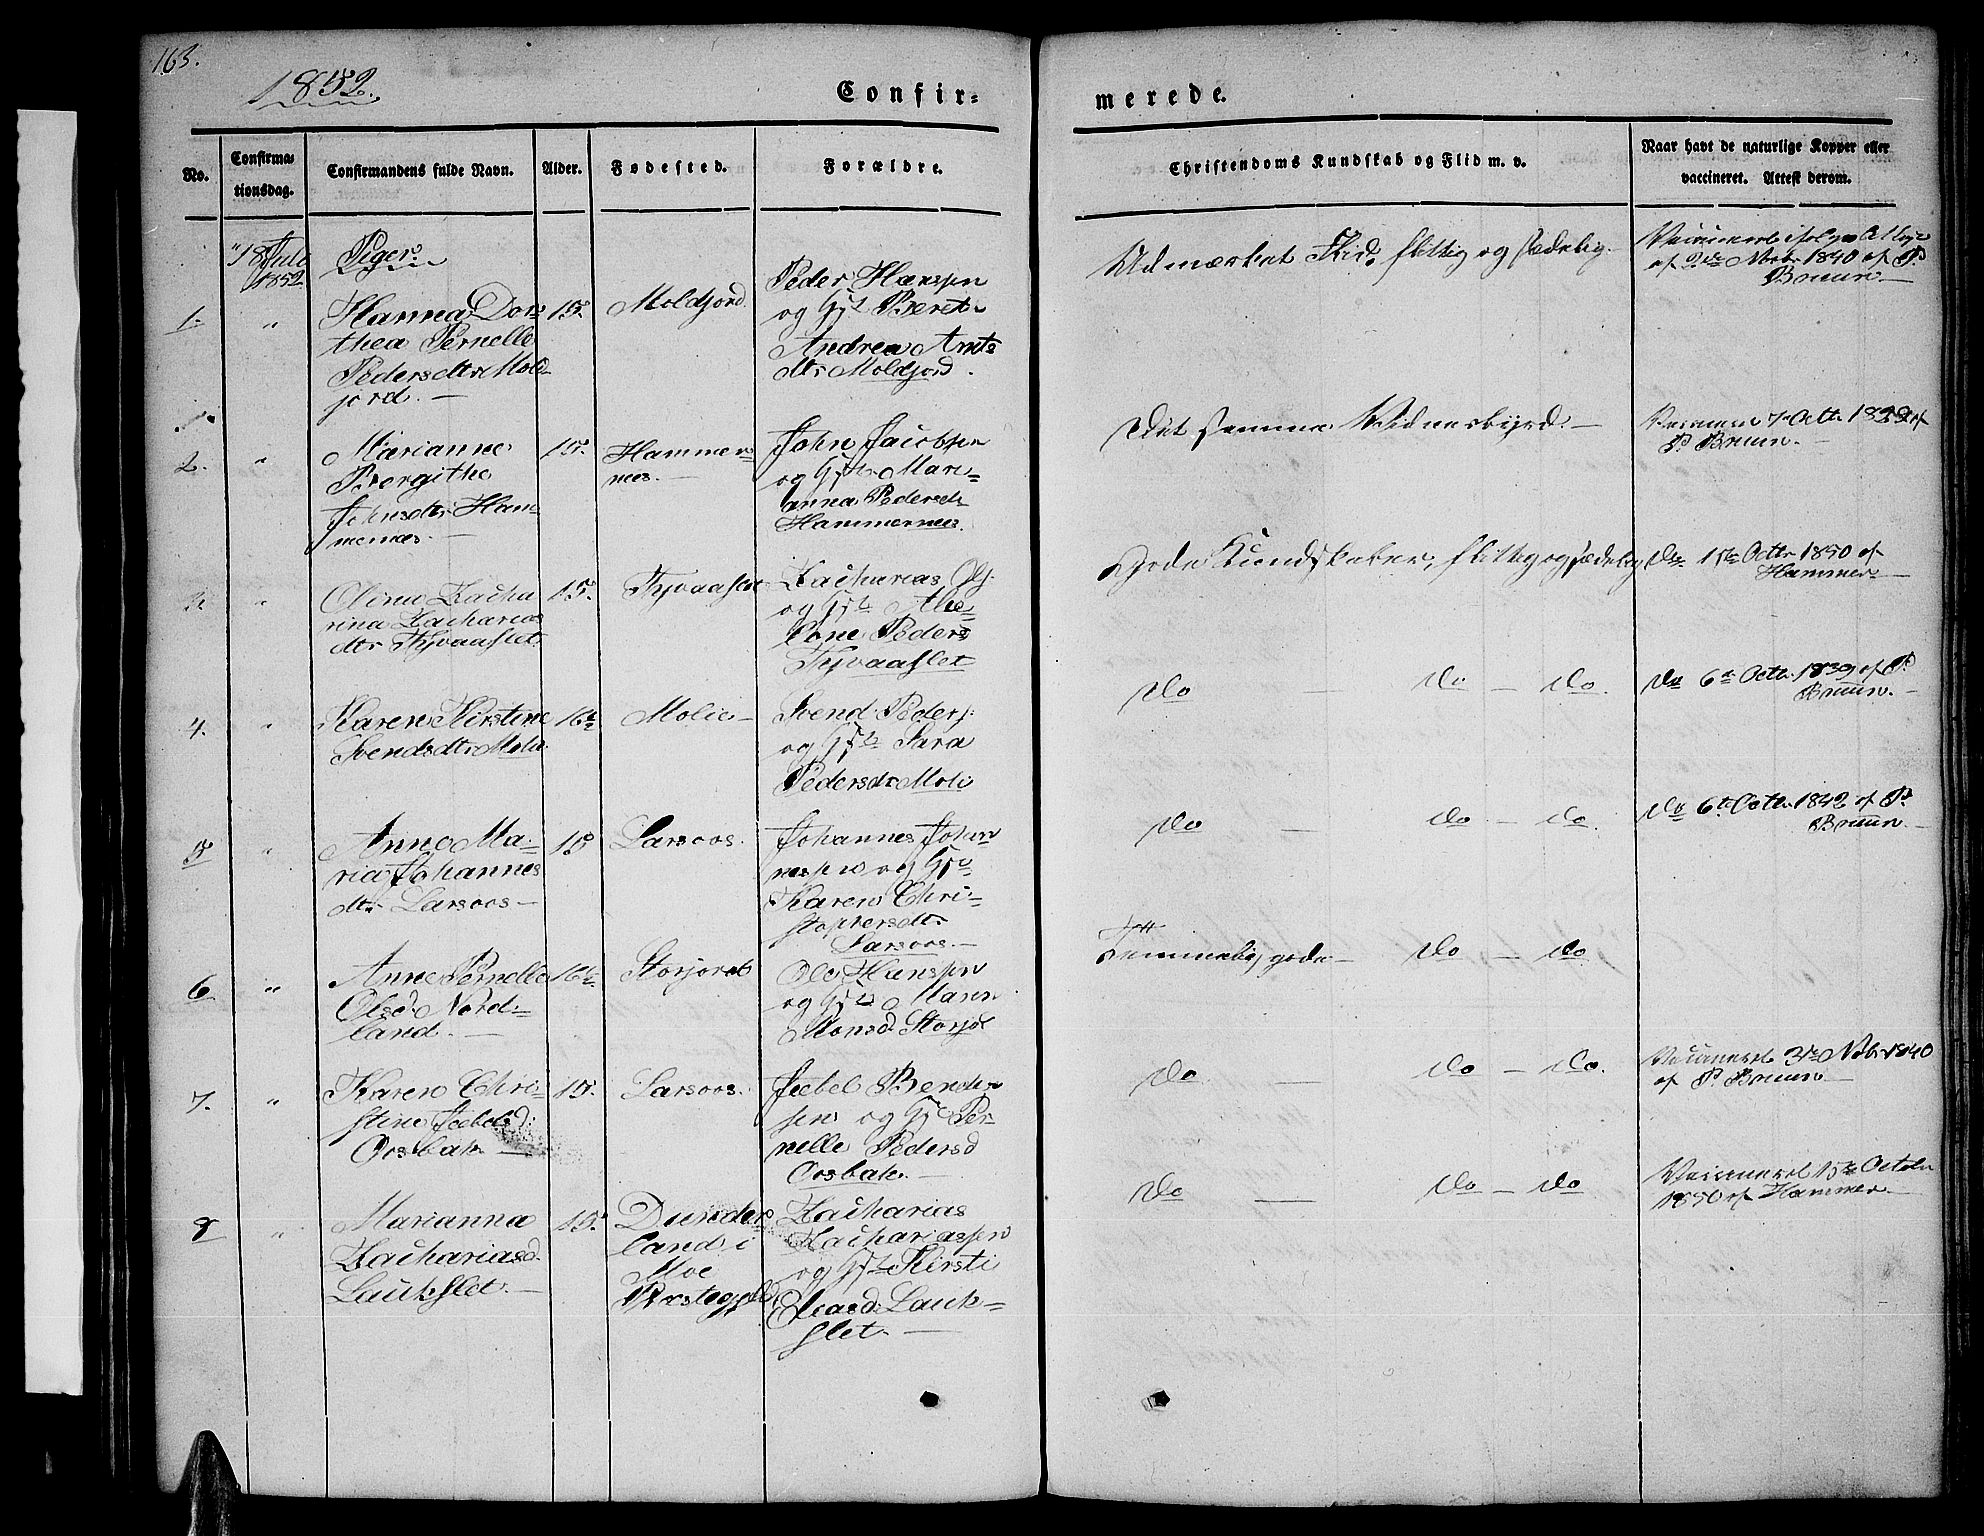 163.
1852.
Confir=
merede.
No.
Confirma
tionsdag.
Confirmandens fulde Navn.
Alder.
Fødested.
Forældre.
Christendoms Kundskab og Flid m. v.
Naar havt de naturlige Kopper eller
vaccineret. Attest derom.
18 Juli
1852
Piger
1.
"
Hanna Dor=
thea Pernelle
Pedersdtr Mold=
jord.
15.
Moldjord
Peder Hansen
og Hst Beret
Andrea Arnts
dtr Moldjord.
Udmærket Flid, flittig og sædelig.
af 2de Novbr 1840 af P.
Bruun.
2.
"
Marianne
Bergithe
Johnsdtr Ham=
mernæs.
15.
Hammer=
næs.
John Jacobsen
og Hst Mari=
anna Pedersdtr
Hammernæs.
Det samme Vidnesbyrd.
7 Octr.
P. Bruun.
3.
"
Oline Zacha
rina Zacharias
dtr Thjvaaslet
15.
Thjvaaslet
Zacharias Ols.
og Hst
Peders
Thjvaaslet
Gode Kundskaber, flittig og sædelig
Do 15de Octr 1850 af
Hammer
4.
"
Karen Kirstine
Svendsdtr Moli
16½
Moli
Svend Peders.
og Hst Sara
Pedersdtr Moli
Do — Do — Do.
Do 6te Octr. 1839 af P.
Bruun.
5
"
Anne Ma=
ria Johannes
dtr Larsoos
15
Larsoos.
Johannes Johan
nesen og Hst
Karen Chri=
stophersdtr
Larsoos.
Do — Do — Do.
Do 6te Octr. 1842 af P.
Bruun
6.
"
Anne Pernelle
Olsd. Nord=
land.
16½
Storjord
Ole Hansen
og Hst Maren
Monsd. Storjor
Temmelig gode — Do — Do
7.
"
Karen Chri=
stine Jebelsd.
Oosbak
15.
Larsoos.
Jebel Bendt=
sen og Hst Per
nelle Pedersd
Oosbak.
Do — Do — Do.
Vaccineret 3de Novbr 1840
af P. Bruun
8
"
Marianna
Zachariasd.
Laukslet.
15.
Dunder
land i
Moe
Præstegjeld
Zacharias
Zachariassen
og Hst Kirsti
Eliasd. Lauk=
slet.
Do — Do — Do
Vaccineret 15de Octobr
1850 af Hammer